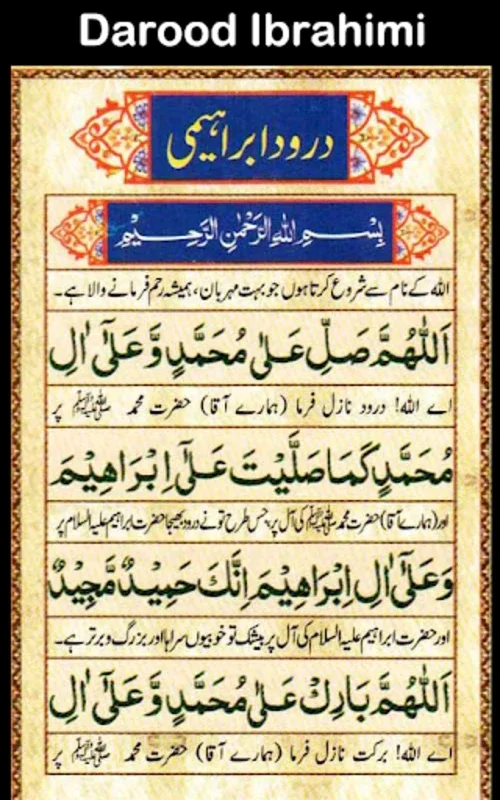 Darood Ibrahimi
درود ابراہیمی
بِسْمِ اللهِ الرَّحْمٰنِ الرَّحِيْمِ
اللہ کے نام سے شروع کرتا ہوں جو بہت مہربان، ہمیشہ رحم فرمانے والا ہے۔
اَللّٰهُمَّ صَلِّ عَلٰى مُحَمَّدٍ وَّعَلٰٓى اٰلِ
اے اللہ! درود نازل فرما (ہمارے آقا) حضرت محمد ﷺ پر
مُحَمَّدٍ كَمَا صَلَّيْتَ عَلٰٓى اِبْرَاهِيْمَ
اور (ہمارے آقا) حضرت محمد ﷺ کی آل پر، جس طرح تو نے درود بھیجا حضرت ابراہیم علیہ السلام پر
وَعَلٰٓى اٰلِ اِبْرَاهِيْمَ اِنَّكَ حَمِيْدٌ مَّجِيْدٌ
اور حضرت ابراہیم علیہ السلام کی آل پر بیشک تو خوبیوں سراہا اور بزرگ و برتر ہے۔
اَللّٰهُمَّ بَارِكْ عَلٰى مُحَمَّدٍ وَّعَلٰٓى اٰلِ
اے اللہ! برکت نازل فرما (ہمارے آقا) حضرت محمد ﷺ پر